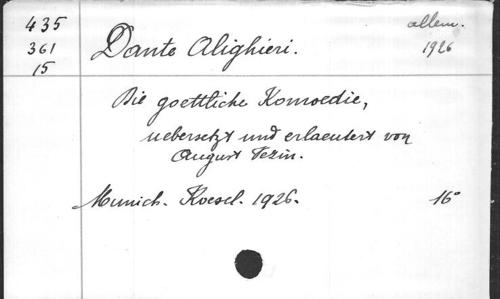 435
361
15
Dante Alighieri.
allem.
1926
Die goettliche Komoedie,
uebersetzt und erlaeutert von
August Vezin.
Munich. Koesel. 1926. 16°